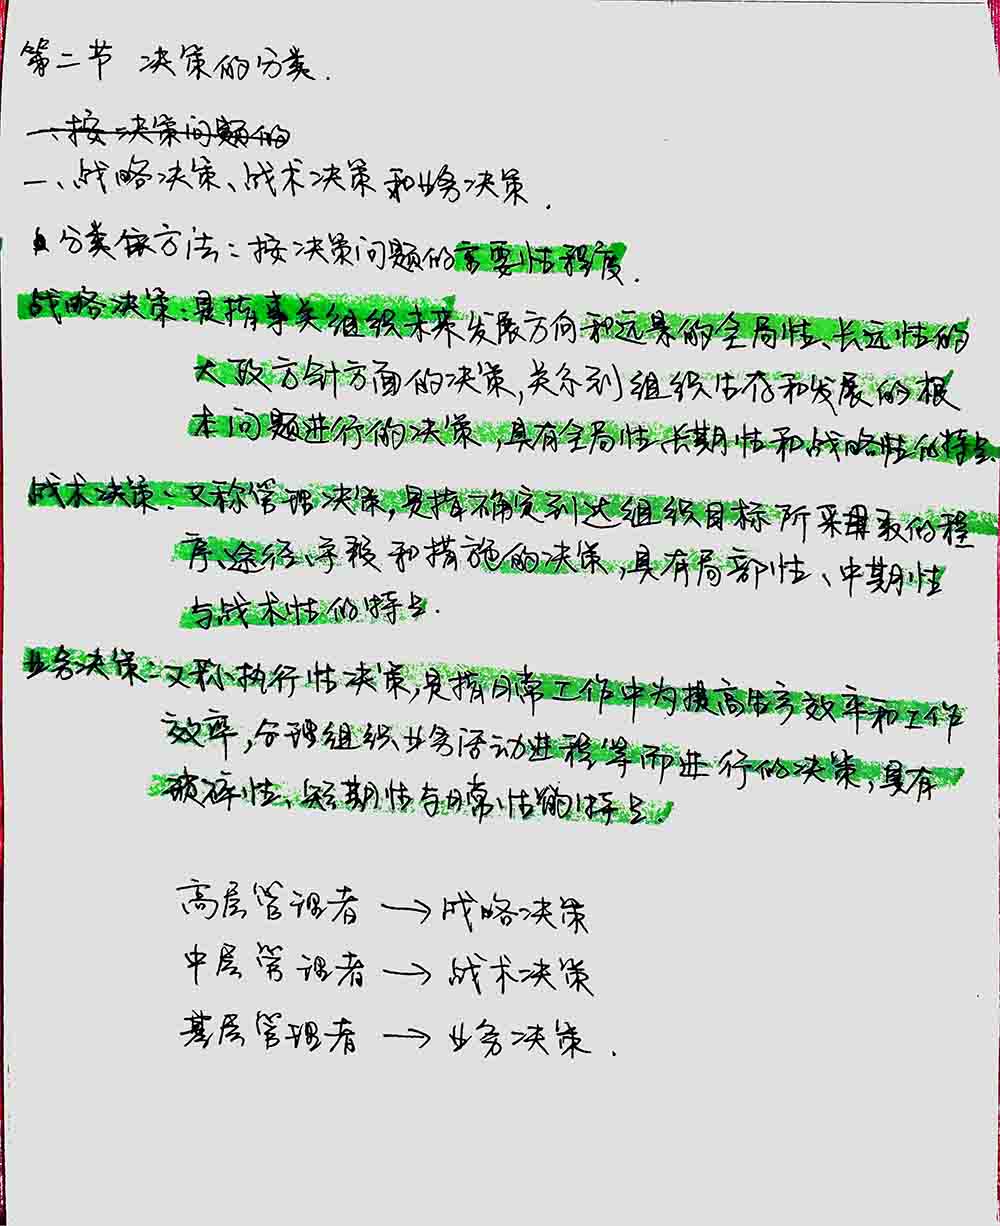 第二节 决策的分类.
一、按决策问题的
一、战略决策、战术决策和业务决策.
分类方法：按决策问题的重要性程度.
战略决策：是指事关组织未来发展方向和远景的全局性、长远性的
大政方针方面的决策,关系到组织生存和发展的根
本问题进行的决策,具有全局性、长期性和战略性的特点.
战术决策：又称管理决策,是指确定到达组织目标所采取的程
序、途径、手段和措施的决策,具有局部性、中期性
与战术性的特点.
业务决策：又称执行性决策,是指日常工作中为提高生产效率和工作
效率,合理组织业务活动进程等而进行的决策,具有
琐碎性、短期性与日常性的特点.
高层管理者 → 战略决策
中层管理者 → 战术决策
基层管理者 → 业务决策.